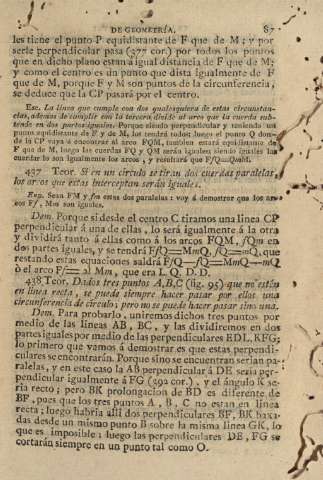 DE GEOMETRÍA. 87
les tiene el punto P equidistante de F que de M; y por
serle perpendicular pasa (377 cor.) por todos los puntos
que en dicho plano estan á igual distancia de F que de M;
y como el centro es un punto que dista igualmente de F
que de M, porque F y M son puntos de la circunferencia,
se deduce que la CP pasará por el centro.
Esc. La línea que cumple con dos qualesquiera de estas circunstan-
cias, ademas de cumplir con la tercera divide al arco que la cuerda sub-
tende en dos partes iguales. Porque siendo perpendicular y teniendo un
punto equidistante de F y de M, los tendrá todos; luego el punto Q don-
de la CP vaya á encontrar al arco FQM, tambien estará equidistante de
F que de M, luego las cuerdas FQ y QM serán iguales; siendo iguales las
cuerdas lo son igualmente los arcos, y resultará que
437 Teor. Si en un círculo se tiran dos cuerdas paralelas,
los arcos que estas interceptan serán iguales.
Exp. Sean FM y fm estas dos paralelas: voy á demostrar que los ar-
cos Ff, Mm son iguales.
Dem. Porque si desde el centro C tiramos una línea CP
perpendicular á una de ellas, lo será igualmente á la otra
y dividirá tanto á ellas como á los arcos FQM, fQm en
dos partes iguales, y se tendrá F/Q=MmQ, fQ=mQ, que
restando estas equaciones saldrá F/Q—fQ=MmQ—mQ
ó el arco Ff= al Mm, que era L. Q. D. D.
438 Teor. Dados tres puntos A,B,C (fig. 95) que no estén
en línea recta, se puede siempre hacer pasar por ellos una
circunferencia de círculo; pero no se puede hacer pasar sino una.
Dem. Para probarlo, uniremos dichos tres puntos por
medio de las líneas AB, BC, y las dividiremos en dos
partes iguales por medio de las perpendiculares EDL, KFG;
lo primero que vamos á demostrar es que estas perpendi-
culares se encontrarán. Porque sino se encuentran serian pa-
ralelas, y en este caso la AB perpendicular á DE seria per-
pendicular igualmente á FG (392 cor.), y el ángulo K se-
ria recto; pero BK prolongacion de BD es diferente de
BF, pues que los tres puntos A, B, C no estan en línea
recta; luego habria allí dos perpendiculares BF, BK baxa-
das desde un mismo punto B sobre la misma línea GK, lo
que es imposible; luego las perpendiculares DE, FG se
cortarán siempre en un punto tal como O.